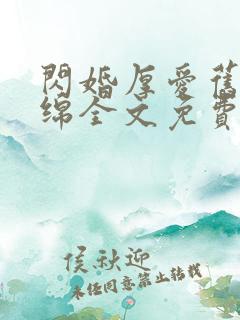 閃婚厚愛舊
绵全文免費
侯秋迎
未经同意禁止转载